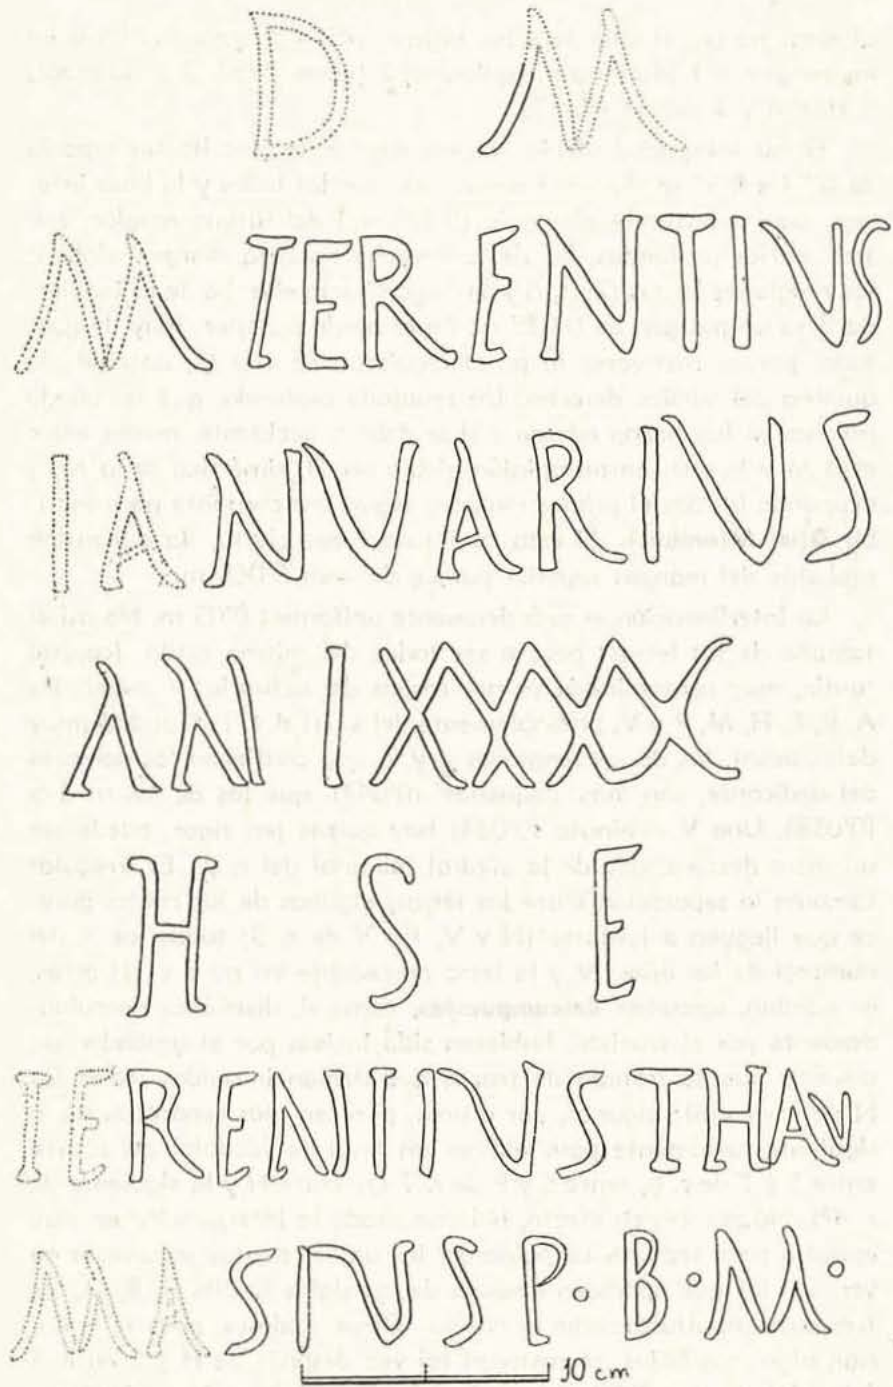 D M
M TERENTIVS
IANVARIVS
ANN IXXXX
H S E
TERENTIVS THAV
MASTVS P·B·M·
10 cm